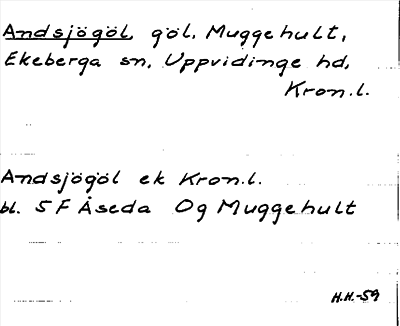 Andsjögöl, göl, Muggehult,
Ekeberga sn, Uppvidinge hd,
Kron.l.
Andsjögöl ek Kron.l.
bl. 5F Åseda Og Muggehult
H.H.-59